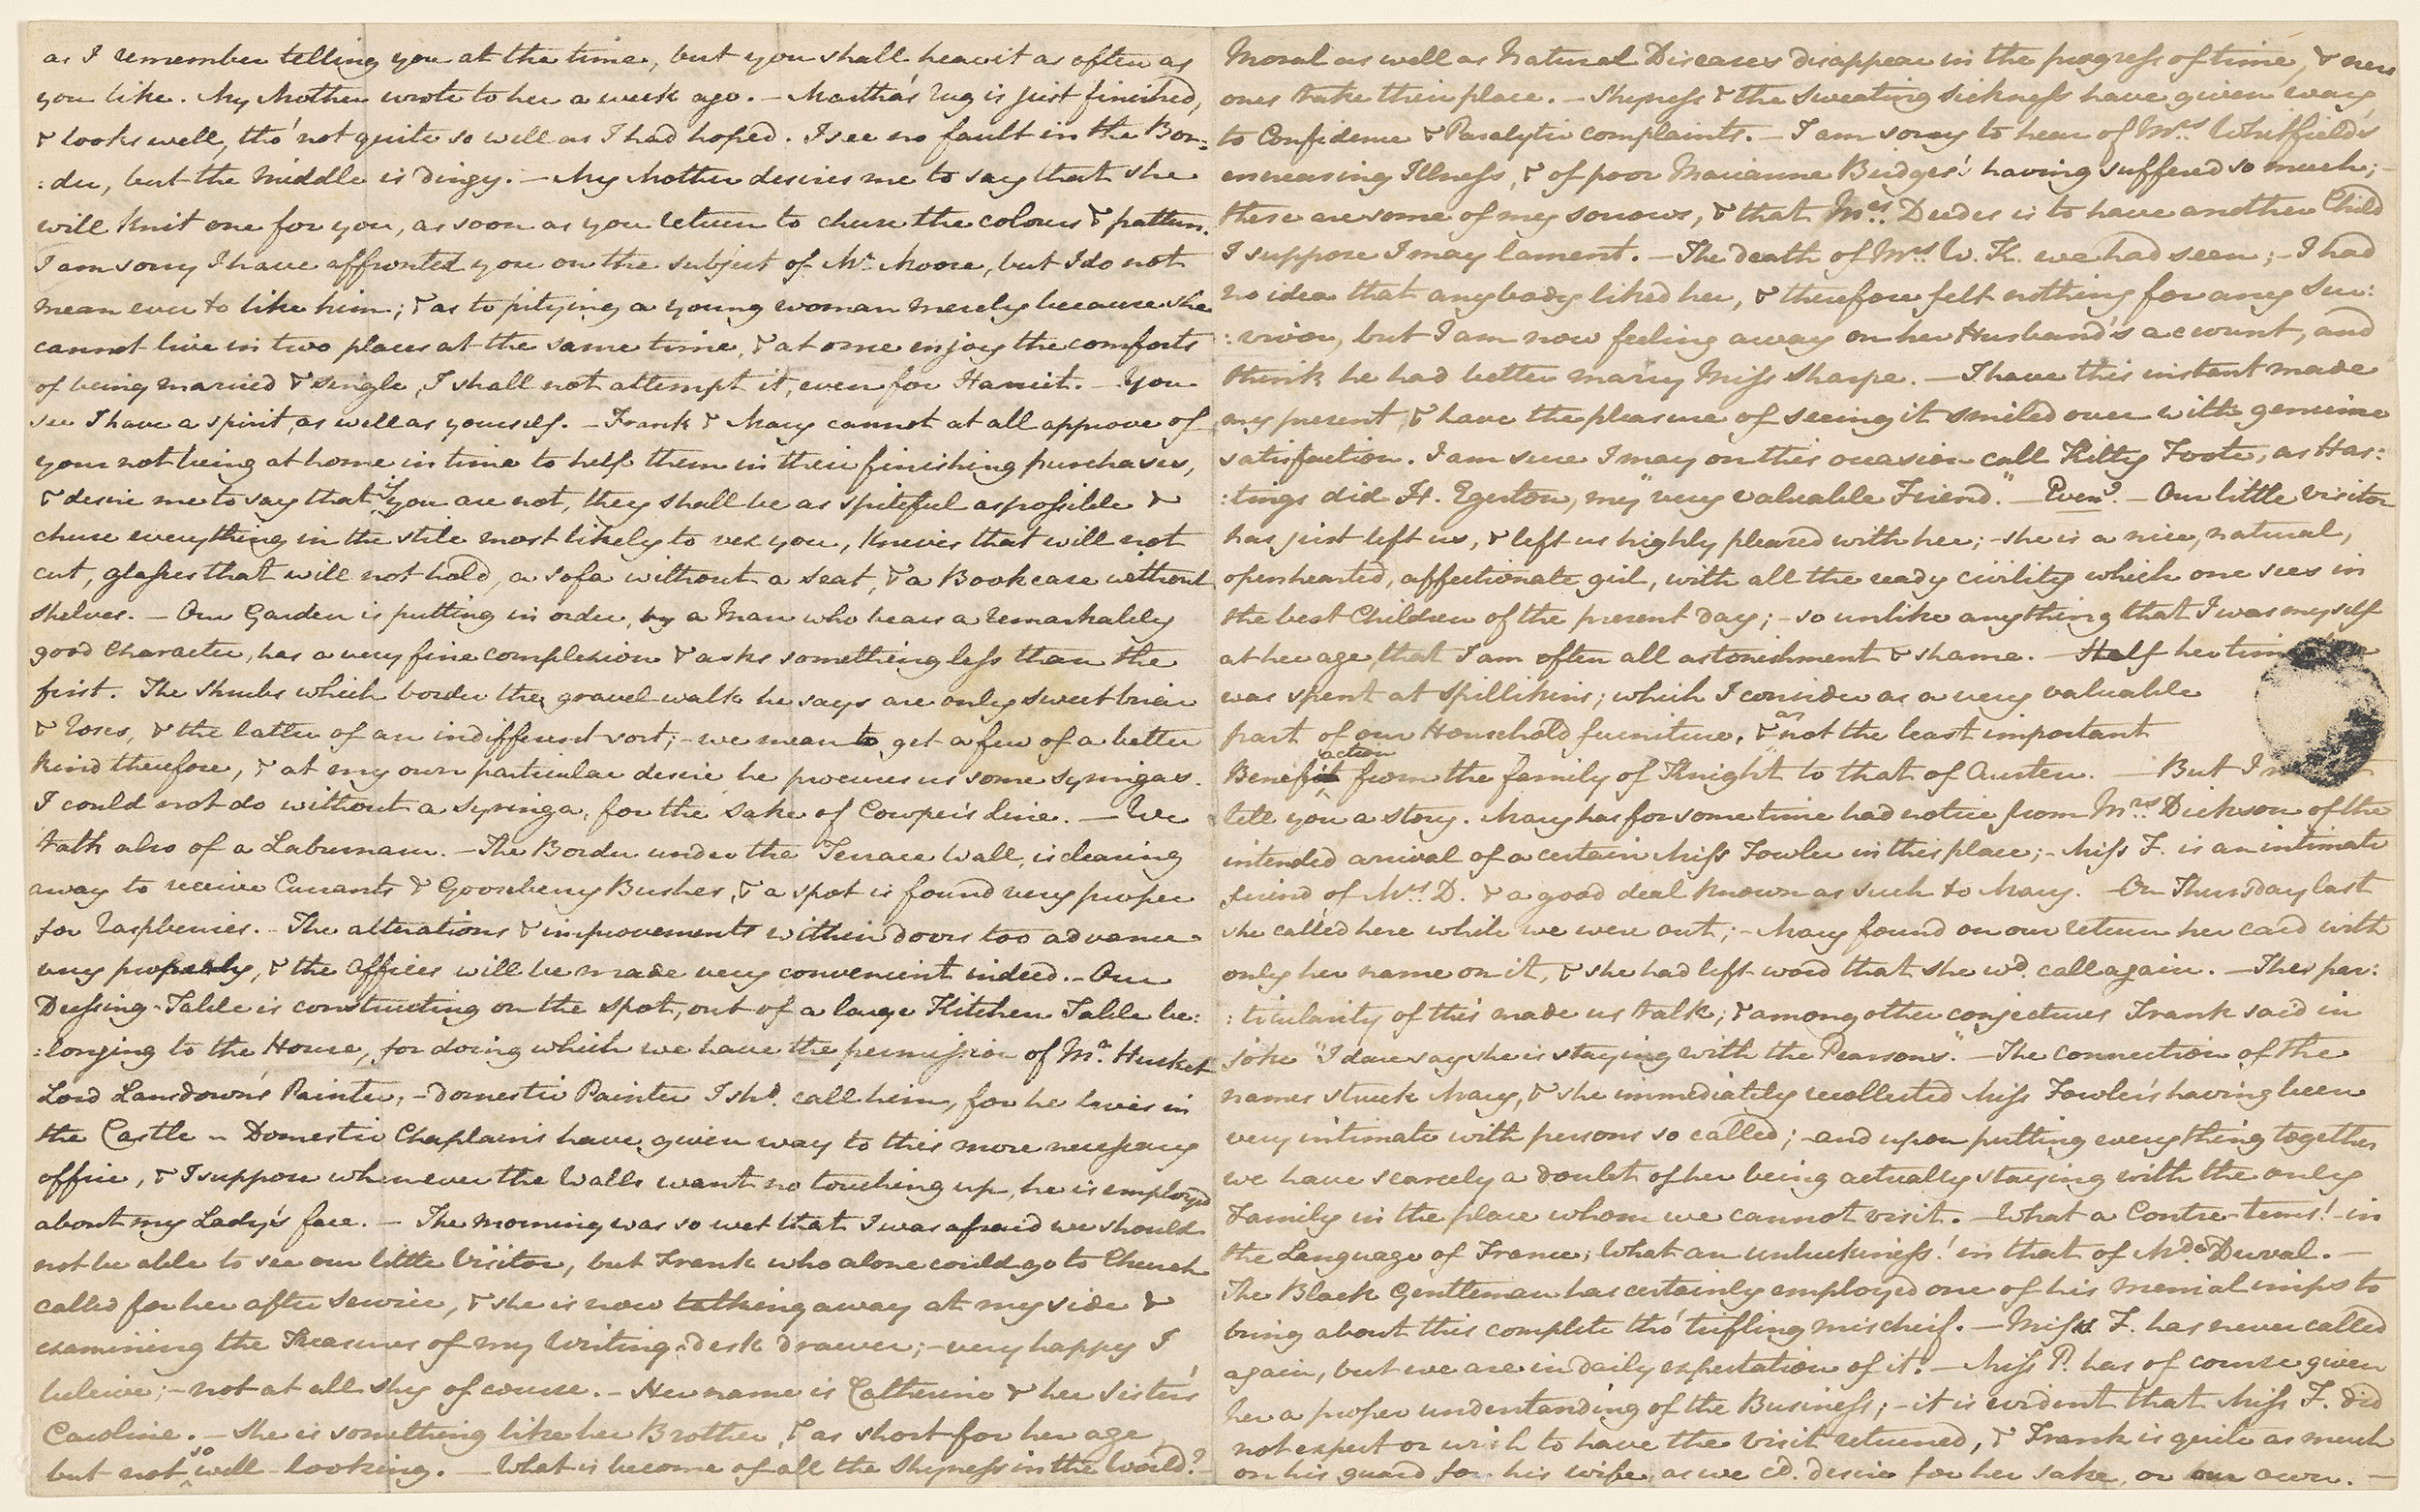 as I remember telling you at the time, but you shall hear it as often as
you like. My Mother wrote to her a week ago. – Martha's rug is just finished,
& looks well, tho' not quite so well as I had hoped. I see no fault in the Bor:
:der, but the Middle is dingy. – My Mother desires me to say that she
will knit one for you, as soon as you return to chuse the colours & pattern.
I am sorry I have affronted you on the subject of Mr. Moore, but I do not
mean ever to like him; & as to pitying a young woman merely because she
cannot live in two places at the same time, & at once enjoy the comforts
of being married & single, I shall not attempt it, even for Harriot. – You
see I have a spirit, as well as yourself. – Frank & Mary cannot at all approve of
your not being at home in time to help them in their finishing purchases,
& desire me to say that, if you are not, they shall be as spiteful as possible &
chuse everything in the stile most likely to vex you, Knives that will not
cut, glasses that will not hold, a sofa without a seat, & a Bookcase without
shelves. – Our Garden is putting in order, by a Man who bears a remarkably
good Character, has a very fine complexion & asks something less than the
first. The Shrubs which border the gravel walk he says are only sweetbriar
& roses, & the latter of an indifferent sort; – we mean to get a few of a better
kind therefore, & at my own particular desire he procures us some Syringas.
I could not do without a Syringa, for the sake of Cowper's Line. – We
talk also of a Laburnam. – The Border under the Terrace Wall, is clearing
away to receive Currants & Gooseberry Bushes, & a spot is found very proper
for Raspberries. – The alterations & improvements within doors too advance
very properly, & the Offices will be made very convenient indeed. – Our
Dressing-Table is constructing on the spot, out of a large Kitchen Table be:
:longing to the House, for doing which we have the permission of Mr. Husket
Lord Lansdown's Painter, – domestic Painter I shd. call him, for he lives in
the Castle – Domestic Chaplains have given way to this more necessary
office, & I suppose whenever the Walls want no touching up, he is employed
about my Lady's face. – The morning was so wet that I was afraid we should
not be able to see our little Visitor, but Frank who alone could go to Church
called for her after Service, & she is now talking away at my side &
examining the Treasures of my Writing-desk drawer; – very happy I
beleive; – not at all shy of course. – Her name is Catherine & her Sister's
Caroline. – She is something like her Brother, & as short for her age,
but not so well-looking. – What is become of all the Shyness in the World?
Moral as well as Natural Diseases disappear in the progress of time, & new
ones take their place. – Shyness & the Sweating Sickness have given way
to Confidence & Paralytic complaints. – I am sorry to hear of Mrs. Whitfield's
encreasing Illness, & of poor Marianne Bridges' having suffered so much; –
these are some of my sorrows, & that Mrs. Deedes is to have another Child
I suppose I may lament. – The death of Mrs. W. K. we had seen; – I had
no idea that anybody liked her, & therefore felt nothing for any Sur:
:vivor, but I am now feeling away on her Husband's account, and
think he had better marry Miss Sharpe. – I have this instant made
my present, & have the pleasure of seeing it smiled over with genuine
satisfaction. I am sure I may on this occasion call Kitty Foote, as Has:
:tings did H. Egerton, my "very valuable Friend." – Eveng. – Our little visitor
has just left us, & left us highly pleased with her; – she is a nice, natural,
openhearted, affectionate girl, with all the ready civility which one sees in
the best Children of the present day; – so unlike anything that I was myself
at her age, that I am often all astonishment & shame. – Half her time
was spent at Spillikins; which I consider as a very valuable
part of our Household furniture, & as not the least important
Benefaction from the family of Knight to that of Austen. – But I
tell you a story. Mary has for some time had notice from Mrs. Dickson of the
intended arrival of a certain Miss Fowler in this place; – Miss F. is an intimate
friend of Mrs. D. & a good deal known as such to Mary. – On Thursday last
she called here while we were out; – Mary found on our return her card with
only her name on it, & she had left word that she wd. call again. – The par:
:ticularity of this made us talk; & among other conjectures Frank said in
joke "I dare say she is staying with the Pearsons." – The connection of the
names struck Mary, & she immediately recollected Miss Fowler's having been
very intimate with persons so called; – and upon putting everything together
we have scarcely a doubt of her being actually staying with the only
Family in the place whom we cannot visit. – What a Contre-tems! – in
the Language of France; What an unluckiness! in that of Mde. Duval. –
The Black Gentleman has certainly employed one of his menial imps to
bring about this complete tho' trifling mischeif. – Miss F. has never called
again, but we are in daily expectation of it. – Miss P. has of course given
her a proper understanding of the Business; – it is evident that Miss F. did
not expect or wish to have the visit returned, & Frank is quite as much
on his guard for his wife, as we cd. desire for her sake, or our own. –